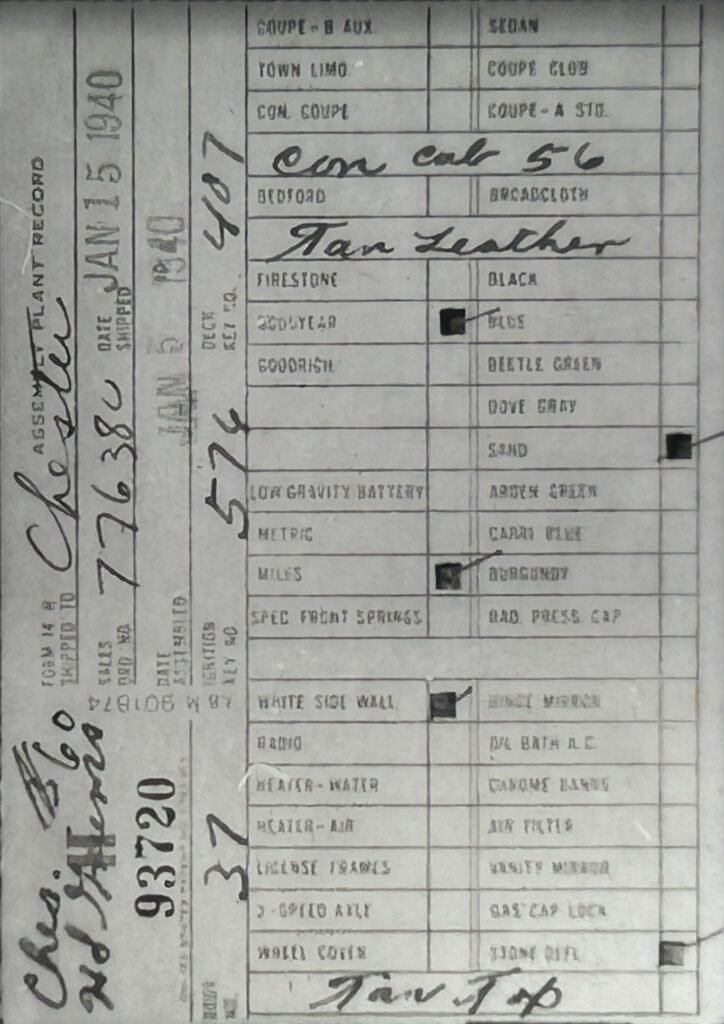 FORM 14 B ASSEMBLY PLANT RECORD
SHIPPED TO Chester
SALES ORD NO. 77638
DATE SHIPPED JAN 15 1940
DATE ASSEMBLED JAN 5 1940
IGNITION KEY NO
DECK KEY NO. 407
Ches. 60
93720
37
COUPE - B AUX SEDAN
TOWN LIMO COUPE CLUB
CON. COUPE COUPE - A STD.
Con cab 56
BEDFORD BROADCLOTH
Tan Leather
FIRESTONE BLACK
GOODYEAR BLUE
GOODRICH BEETLE GREEN
DOVE GRAY
SAND
LOW GRAVITY BATTERY ARDEN GREEN
METRIC
MILES BURGUNDY
SPEC FRONT SPRINGS RAD. PRESS. CAP
WHITE SIDE WALL
RADIO OIL BATH A.C.
HEATER - WATER
HEATER - AIR AIR FILTER
LICENSE FRAMES VANITY MIRROR
2-SPEED AXLE GAS CAP LOCK
WHEEL COVER
Tan Top